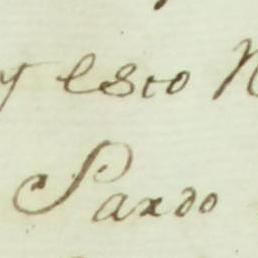 y esto N
Pardo